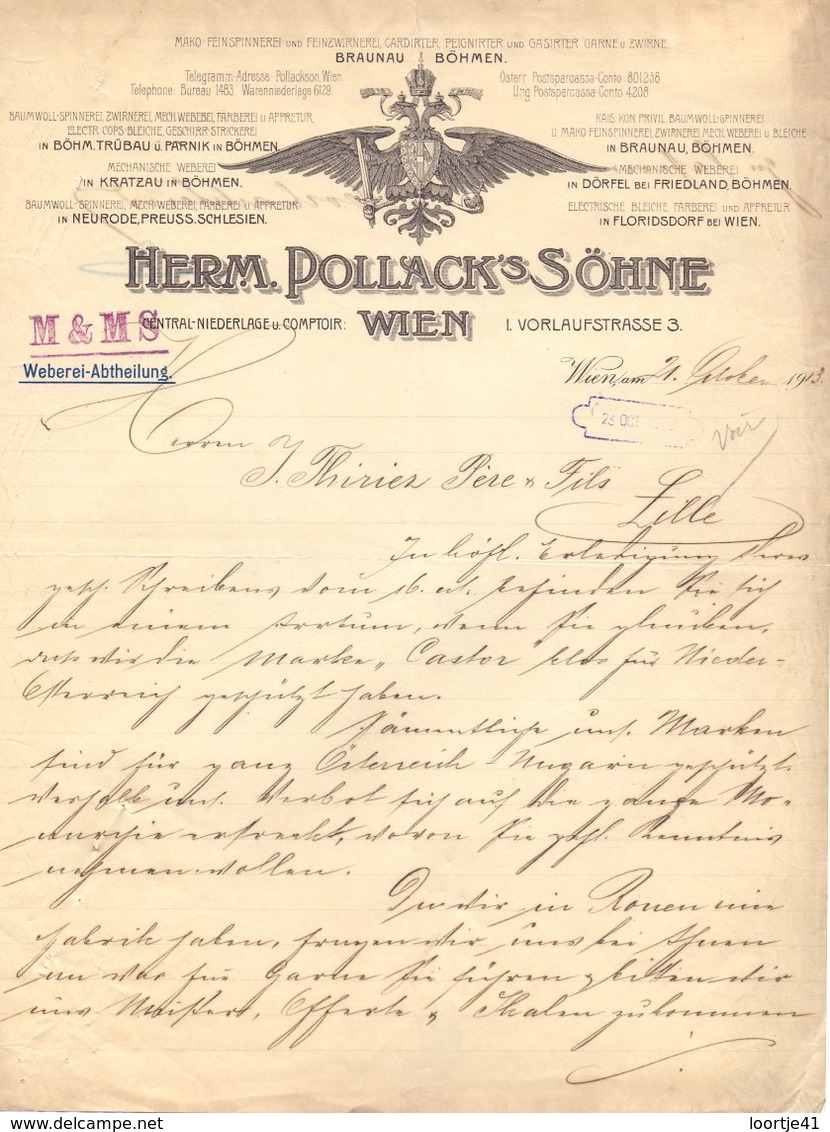 MAKO-FEINSPINNEREI UND FEINZWIRNEREI, CARDIRTER, PEIGNIRTER UND GASIRTER GARNE U. ZWIRNE.
BRAUNAU BÖHMEN.
Telegramm-Adresse Pollackson, Wien
Telephone: Bureau 1483. Warenniederlage 6129.
Österr Postsparcassa-Conto 801.236
Ung. Postsparcassa-Conto 4208
BAUMWOLL-SPINNEREI, ZWIRNEREI, MECH. WEBEREI, FÄRBEREI U. APPRETUR,
ELECTR. COPS BLEICHE, GESCHIRR STRICKEREI
IN BÖHM. TRÜBAU U. PARNIK IN BÖHMEN.
MECHANISCHE WEBEREI
IN KRATZAU IN BÖHMEN.
BAUMWOLL-SPINNEREI, MECH. WEBEREI, FÄRBEREI U. APPRETUR
IN NEURODE, PREUSS. SCHLESIEN.
KAIS. KÖN. PRIVIL. BAUMWOLL-SPINNEREI
U. MAKO-FEINSPINNEREI, ZWIRNEREI, MECH. WEBEREI U. BLEICHE
IN BRAUNAU, BÖHMEN.
MECHANISCHE WEBEREI
IN DÖRFEL BEI FRIEDLAND, BÖHMEN
ELECTRISCHE BLEICHE, FÄRBEREI UND APPRETUR
IN FLORIDSDORF BEI WIEN.
HERM. POLLACK'S SÖHNE
CENTRAL-NIEDERLAGE U. COMPTOIR: WIEN I. VORLAUFSTRASSE 3.
M & M S
Weberei-Abtheilung.
Wien, am 21. October 1913.
23 OCT
Voir
Herren J. Thiriez Père & Fils
Lille
In höfl. Erledigung Ihres
gesch. Schreibens vom 16. ds. befinden Sie sich
in einem Irrtum, wenn Sie glauben,
dass wir die Marke „Castor" blos für Nieder-
Österreich geschützt haben.
Sämmtliche uns. Marken
sind für ganz Österreich-Ungarn geschützt
weshalb uns. Verbot sich auf die ganze Mo-
narchie erstreckt, wovon Sie gefl. Kenntnis
nehmen wollen.
Da wir in Rouen eine
Fabrik haben, fragen wir uns bei Ihnen
an was für Garne Sie führen & bitten wir
uns Muster, Offerte & Skalen zukommen
loortje41